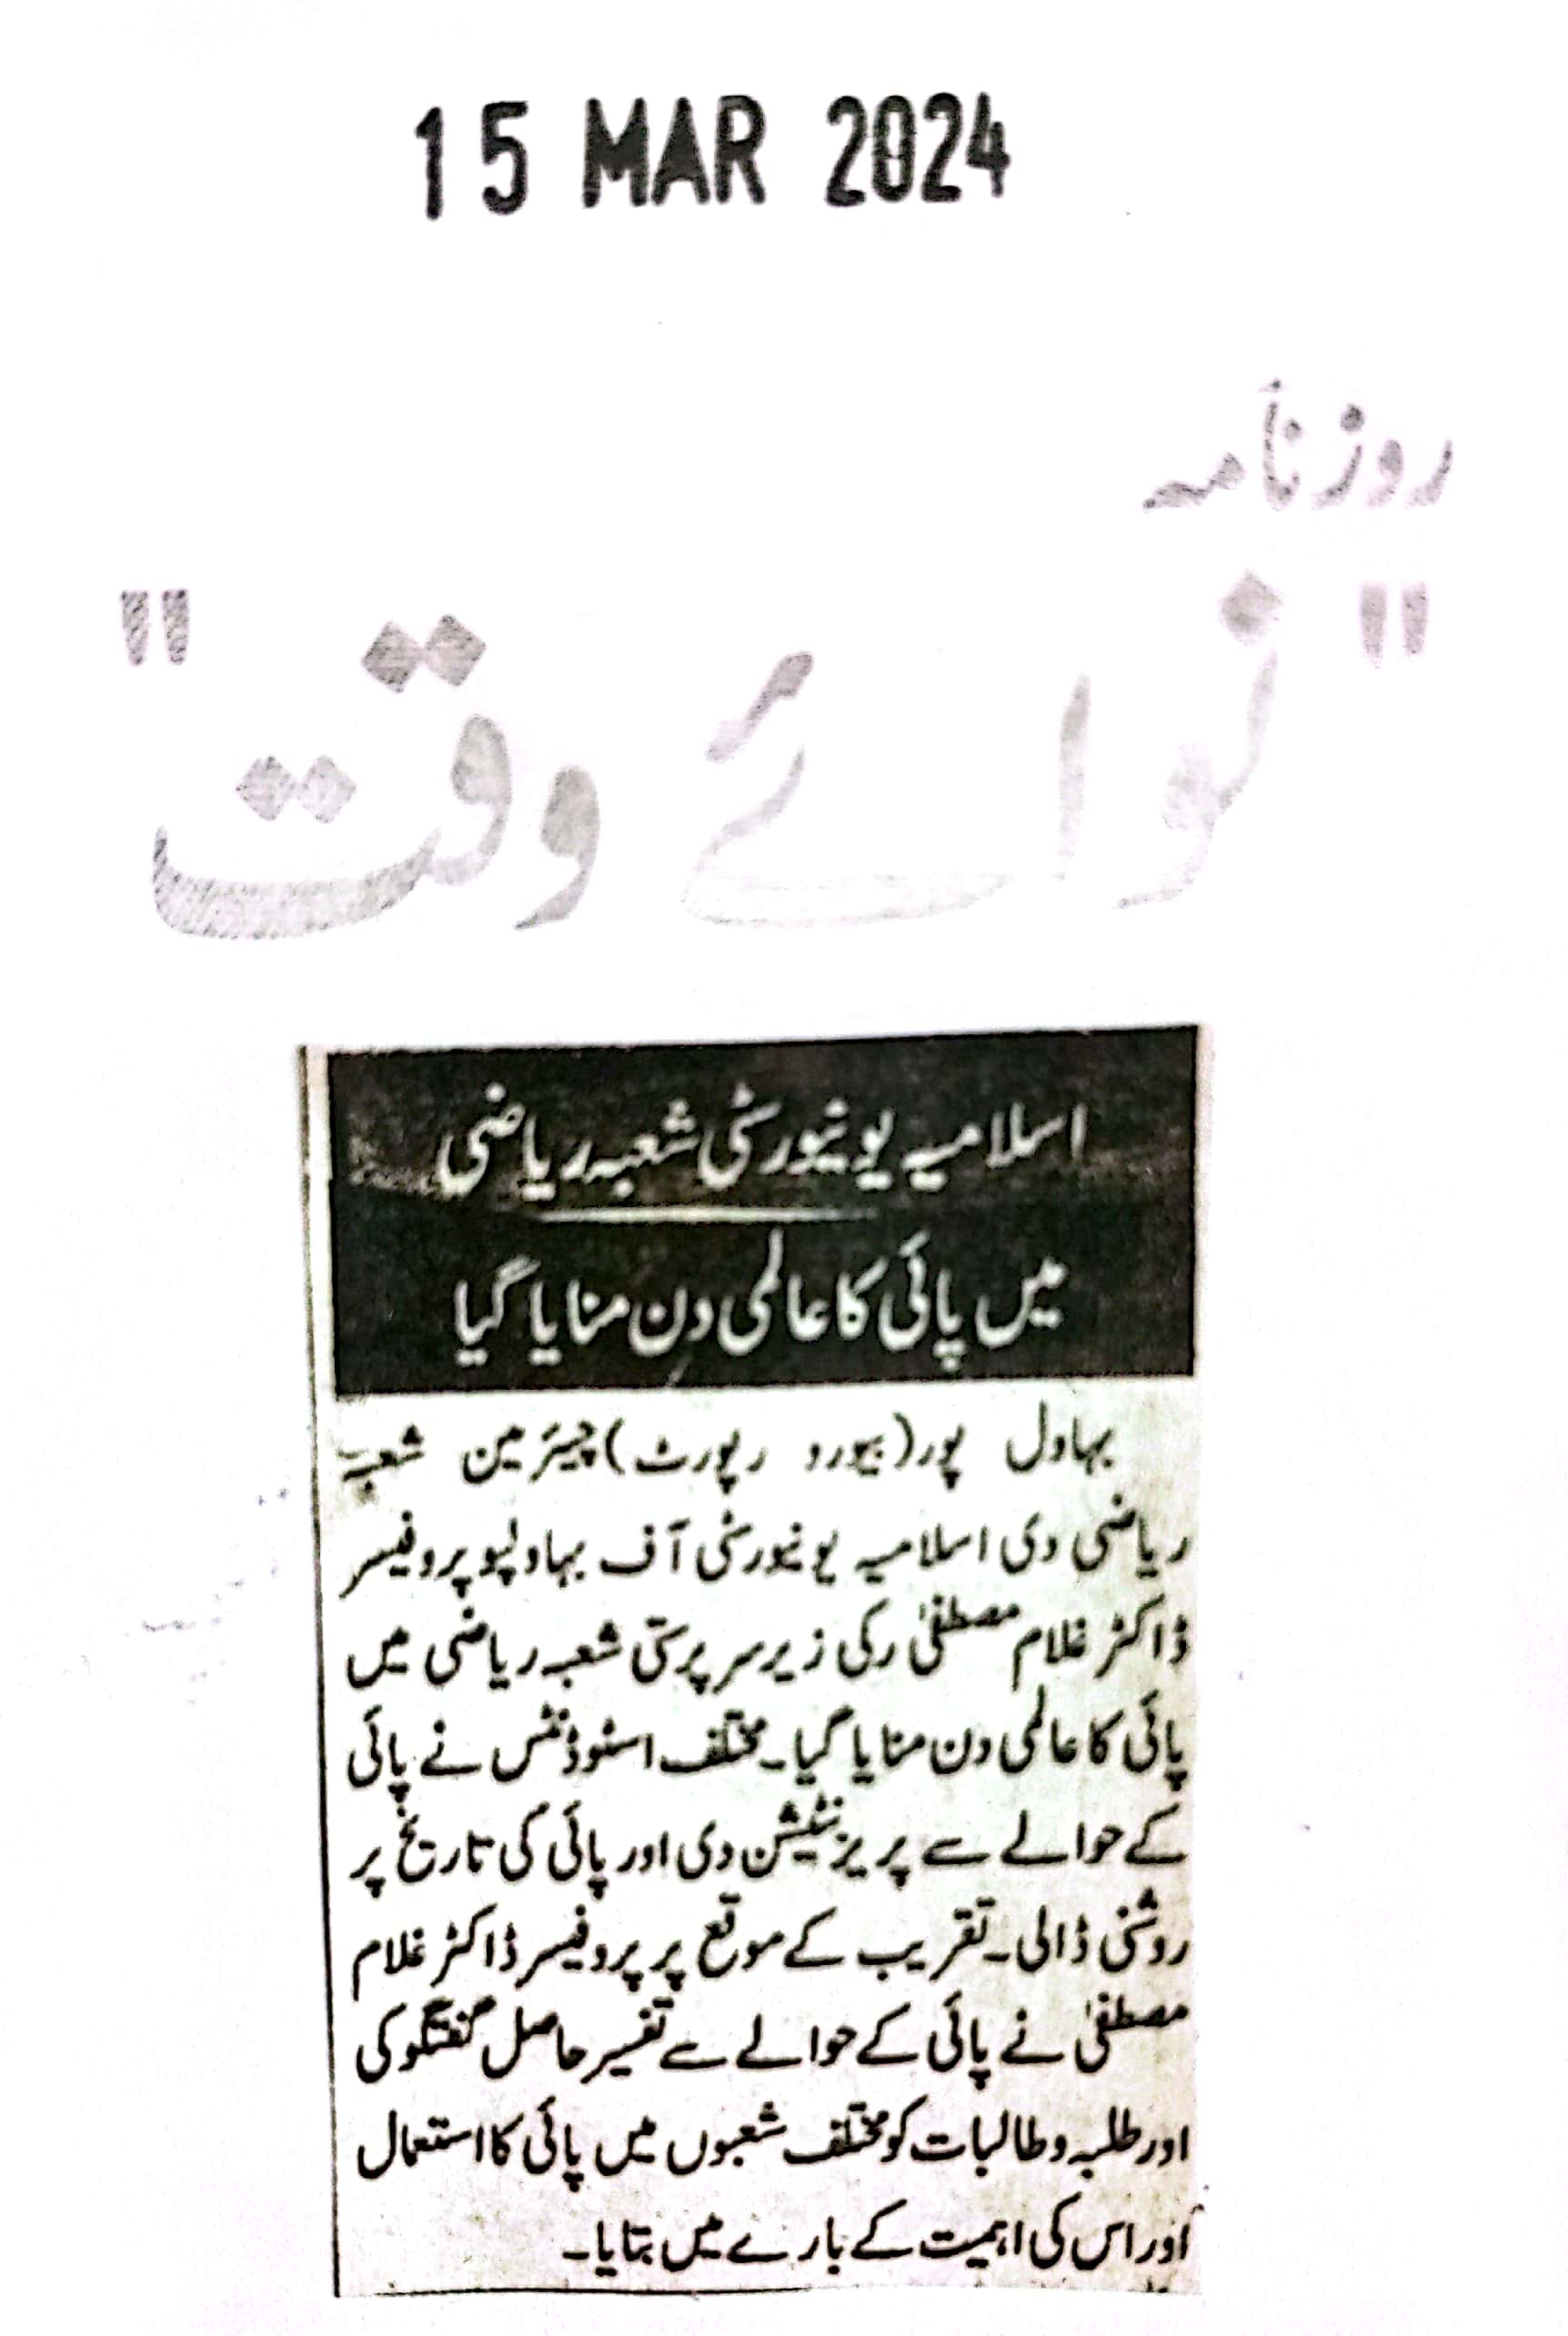 15 MAR 2024
روزنامہ
"نوائے وقت"
اسلامیہ یونیورسٹی شعبہ ریاضی
میں پائی کا عالمی دن منایا گیا
بہاول پور(بیورو رپورٹ)چیئرمین شعبہ
ریاضی دی اسلامیہ یونیورسٹی آف بہاولپو پروفیسر
ڈاکٹر غلام مصطفیٰ رکی زیر سرپرستی شعبہ ریاضی میں
پائی کا عالمی دن منایا گیا۔ مختلف اسٹوڈنٹس نے پائی
کے حوالے سے پریزنٹیشن دی اور پائی کی تاریخ پر
روشنی ڈالی۔ تقریب کے موقع پر پروفیسر ڈاکٹر غلام
مصطفیٰ نے پائی کے حوالے سے تفسیر حاصل گفتگو کی
اور طلبہ و طالبات کو مختلف شعبوں میں پائی کا استعمال
اور اس کی اہمیت کے بارے میں بتایا۔